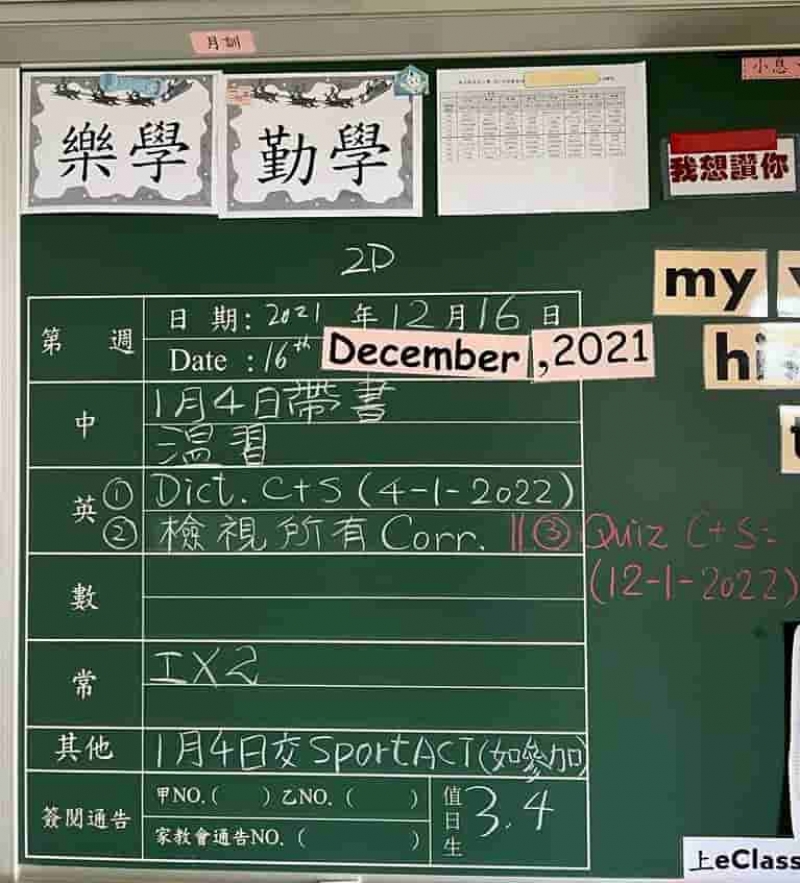 月訓
小息
樂學
勤學
我想讚你
my
hi
2D
第 週
日 期: 2021 年 12 月 16 日
Date : 16th December ,2021
中
1月4日帶書
温習
英
① Dict. C+S (4-1-2022)
② 檢視所有 Corr. || ③ Quiz C+S:
(12-1-2022)
數
常
工X2
其他
1月4日交 Sport ACT (如參加)
簽閱通告
甲NO. ( ) 乙NO. ( )
家教會通告NO. ( )
值日生
3.4
上eClass